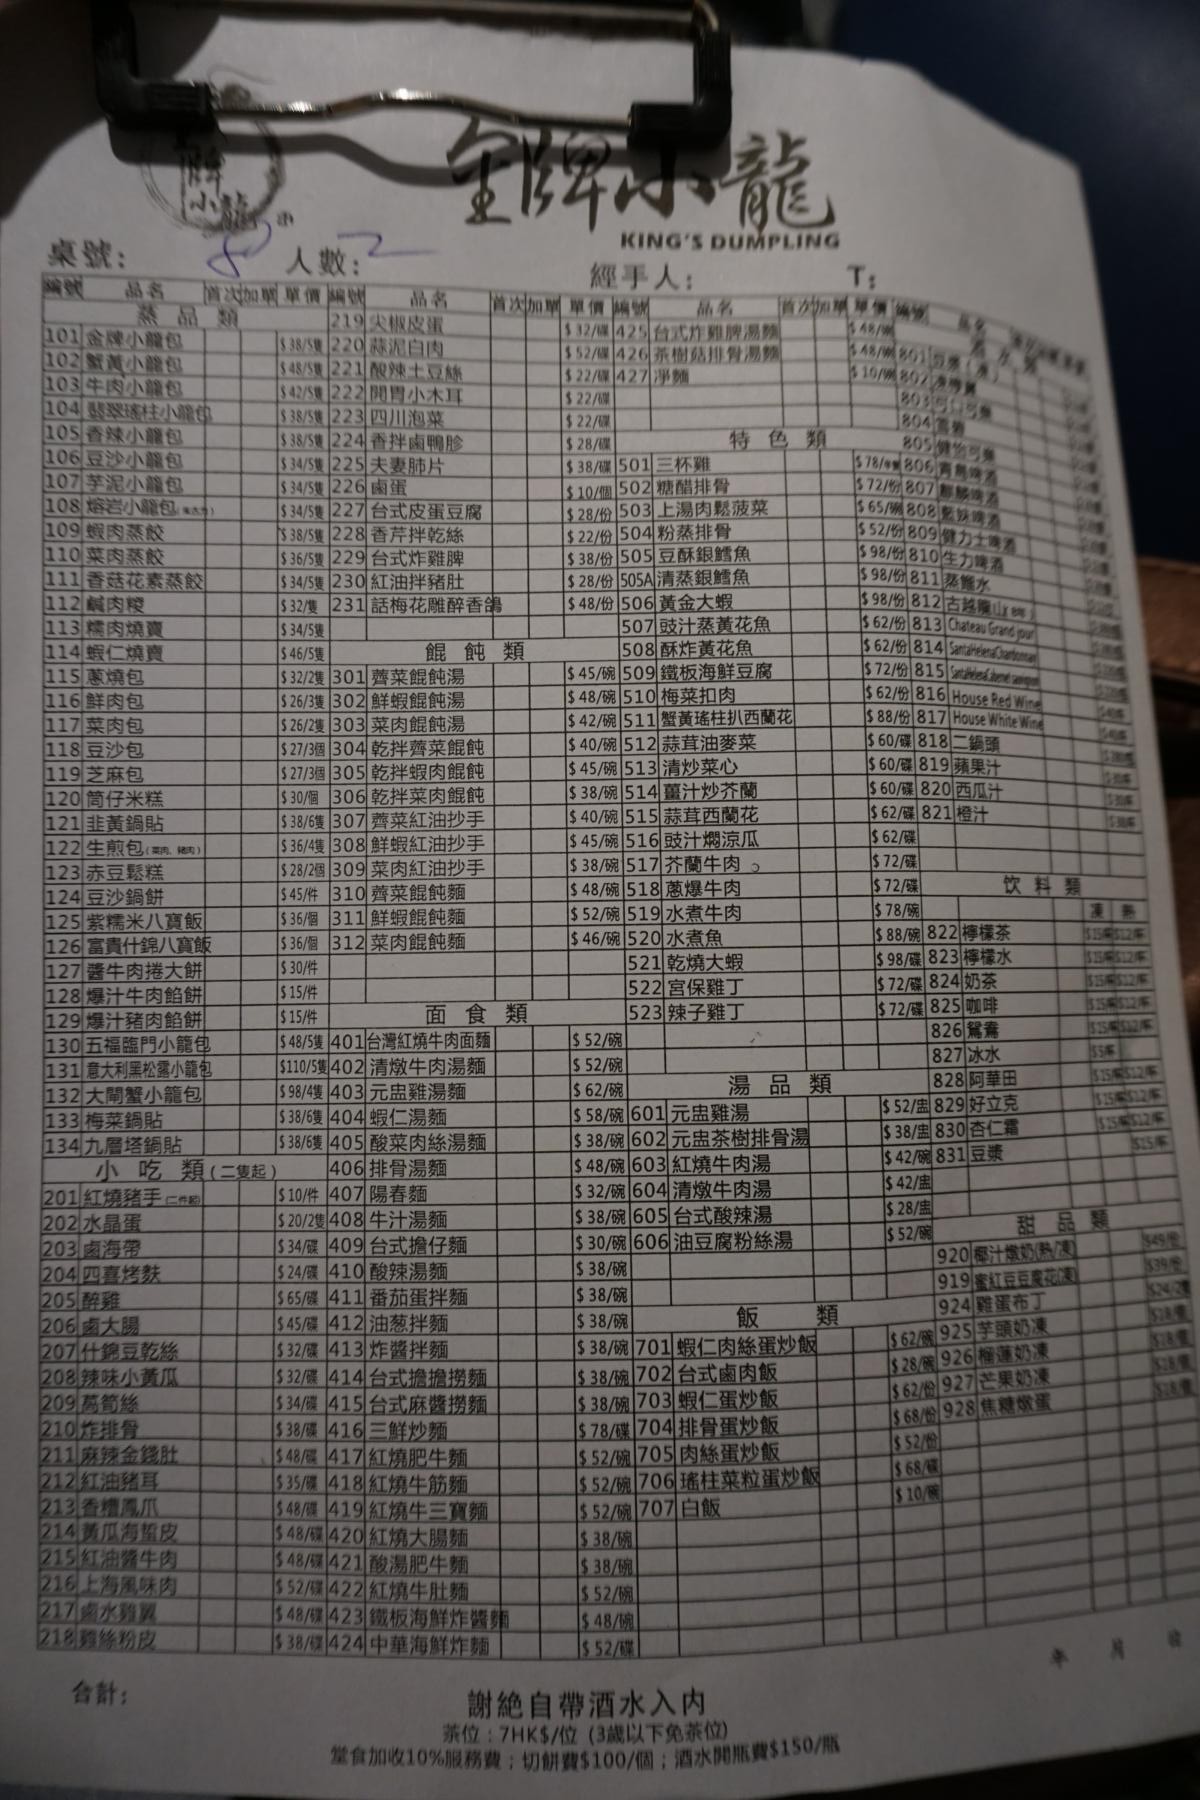 金牌小龍
牌
小龍
KING'S DUMPLING
桌號: 8 人數: 2 經手人: T:
編號 品名 首次 加單 單價
蒸品類
101 金牌小籠包 $38/5隻
102 蟹黃小籠包 $48/5隻
103 牛肉小籠包 $42/5隻
104 翡翠瑤柱小籠包 $38/5隻
105 香辣小籠包 $38/5隻
106 豆沙小籠包 $34/5隻
107 芋泥小籠包 $34/5隻
108 熔岩小籠包 $34/5隻
109 蝦肉蒸餃 $38/5隻
110 菜肉蒸餃 $36/5隻
111 香菇花素蒸餃 $34/5隻
112 鹹肉糉 $32/隻
113 糯肉燒賣 $34/5隻
114 蝦仁燒賣 $46/5隻
115 蔥燒包 $32/2隻
116 鮮肉包 $26/3隻
117 菜肉包 $26/2隻
118 豆沙包 $27/3個
119 芝麻包 $27/3個
120 筒仔米糕 $30/個
121 韭黃鍋貼 $38/6隻
122 生煎包(菜肉、豬肉) $36/4隻
123 赤豆鬆糕 $28/2個
124 豆沙鍋餅 $45/件
125 紫糯米八寶飯 $36/個
126 富貴什錦八寶飯 $36/個
127 醬牛肉捲大餅 $30/件
128 爆汁牛肉餡餅 $15/件
129 爆汁豬肉餡餅 $15/件
130 五福臨門小籠包 $48/5隻
131 意大利黑松露小籠包 $110/5隻
132 大閘蟹小籠包 $98/4隻
133 梅菜鍋貼 $38/6隻
134 九層塔鍋貼 $38/6隻
小吃類(二隻起)
201 紅燒豬手(二件起) $10/件
202 水晶蛋 $20/2隻
203 鹵海帶 $34/碟
204 四喜烤麩 $24/碟
205 醉雞 $65/碟
206 鹵大腸 $45/碟
207 什錦豆乾絲 $32/碟
208 辣味小黃瓜 $32/碟
209 萵筍絲 $34/碟
210 炸排骨 $38/碟
211 麻辣金錢肚 $48/碟
212 紅油豬耳 $35/碟
213 香糟鳳爪 $48/碟
214 黃瓜海蜇皮 $48/碟
215 紅油醬牛肉 $48/碟
216 上海風味肉 $52/碟
217 鹵水雞翼 $48/碟
218 雞絲粉皮 $38/碟
編號 品名 首次 加單 單價
219 尖椒皮蛋 $32/碟
220 蒜泥白肉 $52/碟
221 酸辣土豆絲 $22/碟
222 開胃小木耳 $22/碟
223 四川泡菜 $22/碟
224 香拌鹵鴨胗 $28/碟
225 夫妻肺片 $38/碟
226 鹵蛋 $10/個
227 台式皮蛋豆腐 $28/份
228 香芹拌乾絲 $22/份
229 台式炸雞脾 $38/份
230 紅油拌豬肚 $28/份
231 話梅花雕醉香鴿 $48/份
餛飩類
301 薺菜餛飩湯 $45/碗
302 鮮蝦餛飩湯 $48/碗
303 菜肉餛飩湯 $42/碗
304 乾拌薺菜餛飩 $40/碗
305 乾拌蝦肉餛飩 $45/碗
306 乾拌菜肉餛飩 $38/碗
307 薺菜紅油抄手 $40/碗
308 鮮蝦紅油抄手 $45/碗
309 菜肉紅油抄手 $38/碗
310 薺菜餛飩麵 $48/碗
311 鮮蝦餛飩麵 $52/碗
312 菜肉餛飩麵 $46/碗
面食類
401 台灣紅燒牛肉面麵 $52/碗
402 清燉牛肉湯麵 $52/碗
403 元盅雞湯麵 $62/碗
404 蝦仁湯麵 $58/碗
405 酸菜肉絲湯麵 $38/碗
406 排骨湯麵 $48/碗
407 陽春麵 $32/碗
408 牛汁湯麵 $38/碗
409 台式擔仔麵 $30/碗
410 酸辣湯麵 $38/碗
411 番茄蛋拌麵 $38/碗
412 油葱拌麵 $38/碗
413 炸醬拌麵 $38/碗
414 台式擔擔撈麵 $38/碗
415 台式麻醬撈麵 $38/碗
416 三鮮炒麵 $78/碟
417 紅燒肥牛麵 $52/碗
418 紅燒牛筋麵 $52/碗
419 紅燒牛三寶麵 $52/碗
420 紅燒大腸麵 $38/碗
421 酸湯肥牛麵 $38/碗
422 紅燒牛肚麵 $52/碗
423 鐵板海鮮炸醬麵 $48/碗
424 中華海鮮炸麵 $52/碟
編號 品名 首次 加單 單價
425 台式炸雞脾湯麵 $48/碗
426 茶樹菇排骨湯麵 $48/碗
427 淨麵 $10/碗
特色類
501 三杯雞 $78/
502 糖醋排骨 $72/份
503 上湯肉鬆菠菜 $65/碗
504 粉蒸排骨 $52/份
505 豆酥銀鱈魚 $98/份
505A 清蒸銀鱈魚 $98/份
506 黃金大蝦 $98/份
507 豉汁蒸黃花魚 $62/份
508 酥炸黃花魚 $62/份
509 鐵板海鮮豆腐 $72/份
510 梅菜扣肉 $62/份
511 蟹黃瑤柱扒西蘭花 $88/份
512 蒜茸油麥菜 $60/碟
513 清炒菜心 $60/碟
514 薑汁炒芥蘭 $60/碟
515 蒜茸西蘭花 $62/碟
516 豉汁燜涼瓜 $62/碟
517 芥蘭牛肉 $72/碟
518 蔥爆牛肉 $72/碟
519 水煮牛肉 $78/碗
520 水煮魚 $88/碗
521 乾燒大蝦 $98/碟
522 宮保雞丁 $72/碟
523 辣子雞丁 $72/碟
湯品類
601 元盅雞湯 $52/盅
602 元盅茶樹排骨湯 $38/盅
603 紅燒牛肉湯 $42/碗
604 清燉牛肉湯 $42/盅
605 台式酸辣湯 $28/盅
606 油豆腐粉絲湯 $52/碗
飯類
701 蝦仁肉絲蛋炒飯 $62/碗
702 台式鹵肉飯 $28/碗
703 蝦仁蛋炒飯 $62/份
704 排骨蛋炒飯 $68/份
705 肉絲蛋炒飯 $52/份
706 瑤柱菜粒蛋炒飯 $68/碟
707 白飯 $10/碗
編號 品名
酒水類
801 豆漿(凍)
802
803 可口可樂
804 雪碧
805 健怡可樂
806 青島啤酒
807 麒麟啤酒
808 藍妹啤酒
809 健力士啤酒
810 生力啤酒
811 蒸餾水
812 古越龍山
813 Chateau Grand jour
814 SantaHelenaChardonnay
815 SantaHelenaCabernet sauvignon
816 House Red Wine
817 House White Wine
818 二鍋頭
819 蘋果汁
820 西瓜汁
821 橙汁
饮料類
凍 熱
822 檸檬茶 $15/杯 $12/杯
823 檸檬水 $15/杯 $12/杯
824 奶茶 $15/杯 $12/杯
825 咖啡 $15/杯 $12/杯
826 鴛鴦 $15/杯 $12/杯
827 冰水 $5/杯
828 阿華田 $15/杯 $12/杯
829 好立克 $15/杯 $12/杯
830 杏仁霜 $15/杯 $12/杯
831 豆漿 $15/杯
甜品類
920 椰汁燉奶(熱/凍) $49/份
919 蜜紅豆豆腐花(凍) $39/份
924 雞蛋布丁 $24/2個
925 芋頭奶凍 $18/個
926 榴蓮奶凍 $18/個
927 芒果奶凍 $18/個
928 焦糖燉蛋 $18/個
年 月 日
合計:
謝絕自帶酒水入内
茶位:7HK$/位 (3歲以下免茶位)
堂食加收10%服務費;切餅費$100/個;酒水開瓶費$150/瓶